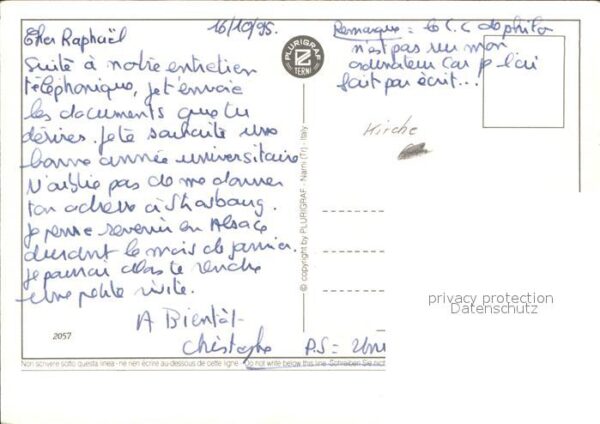 16/10/95.
Cher Raphaël
Suite à notre entretien
téléphonique, je t'envoie
les documents que tu
désires. Je te souhaite une
bonne année universitaire
N'oublie pas de me donner
ton adresse à Strasbourg.
Je pense revenir en Alsace
durant le mois de janvier.
Je pourrai alors te rendre
une petite visite.
A Bientôt
Christophe
P.S =
2057
Non scrivere sotto questa linea - ne rien écrire au-dessous de cette ligne - Do not write below this line - Schreiben Sie nich
PLURIGRAF
TERNI
© copyright by PLURIGRAF - Narni (Tr) - Italy
Remarque = le C.C de philo
n'est pas sur mon
ordinateur car je l'ai
fait par écrit...
Kirche
privacy protection
Datenschutz